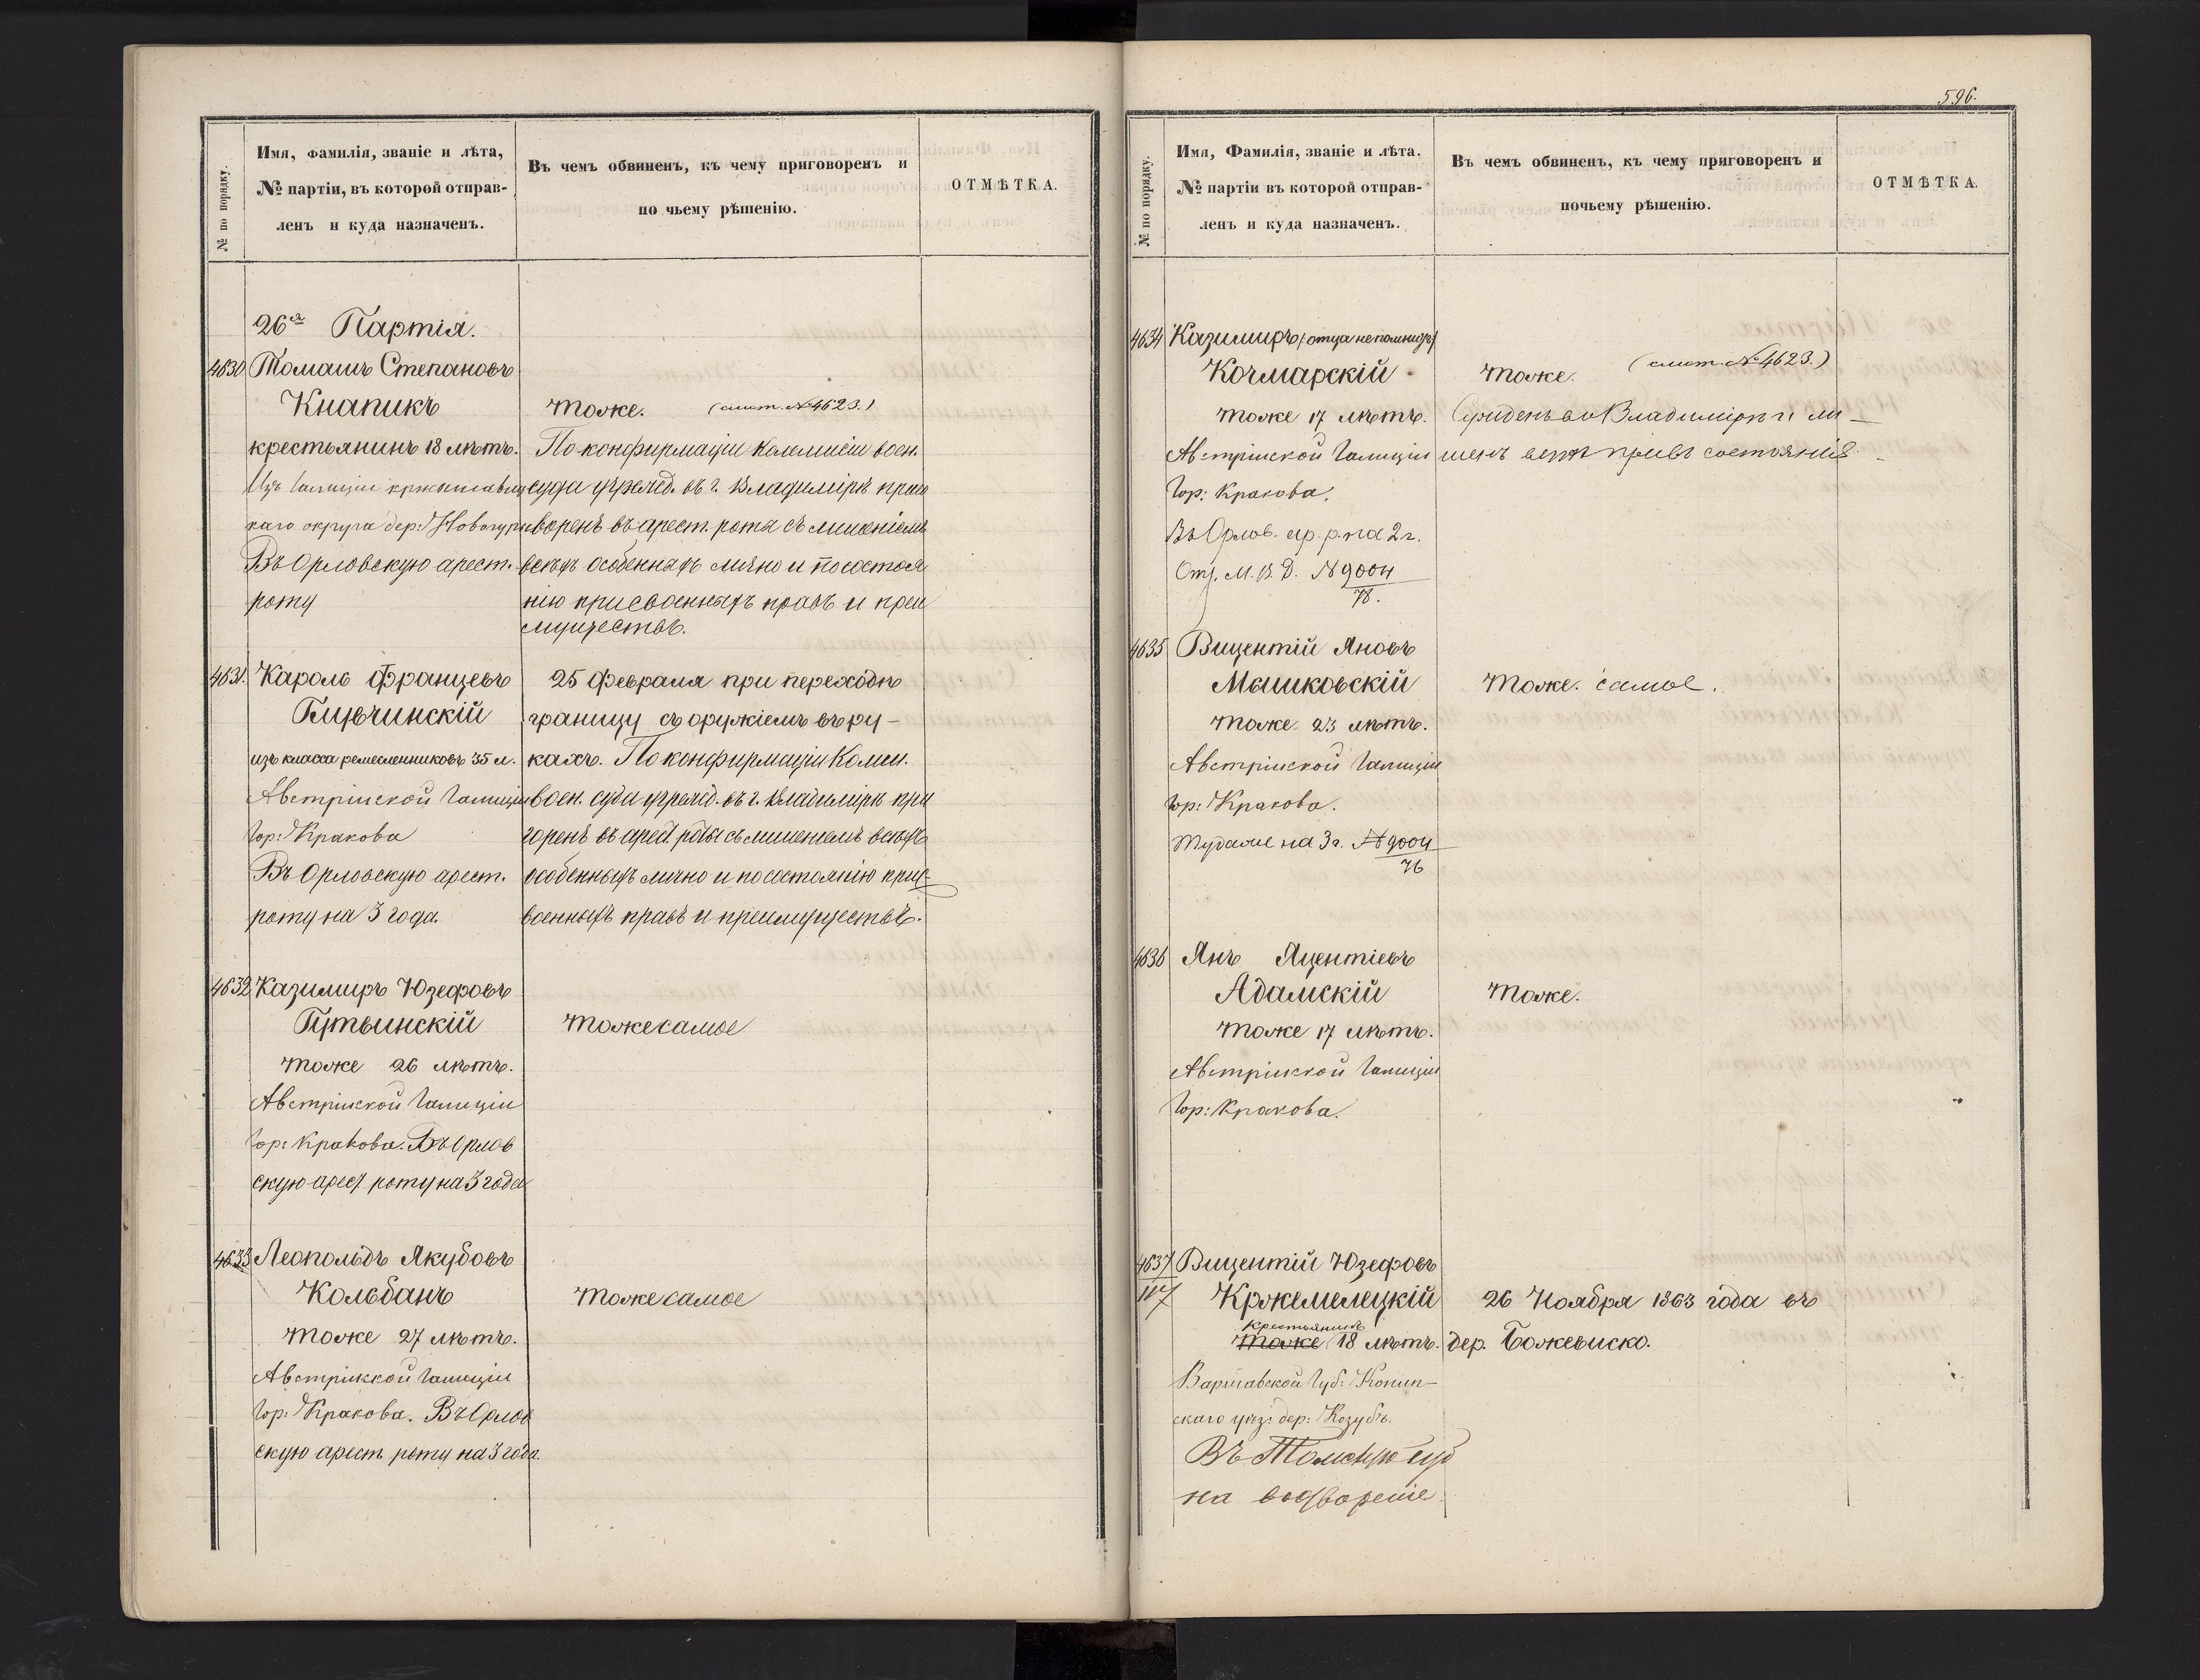 № по порядку.
Имя, фамилія, званіе и лѣта,
№ партіи, въ которой отправ-
ленъ и куда назначенъ.
Въ чемъ обвиненъ, къ чему приговоренъ и
по чьему рѣшенію.
ОТМѢТКА.
26я Партія.
4630 Томашъ Степановъ
Кнапикъ
крестьянинъ 18 лѣтъ.
Изъ Галиціи
каго округа дер:
Въ Орловскую арест.
роту
тоже. (смот. № 4623.)
По конфирмаціи Коммисіи воен.
суда учрежд. въ г. Владимірѣ приго
воренъ въ арест. роты съ лишеніемъ
всѣхъ особенныхъ лично и по состоя
нію присвоенныхъ правъ и преи
муществъ.
4631. Кароль Францевъ
Глувчинскій
изъ класса ремесленниковъ 35 л.
Австрійской Галиціи
Гор: Кракова
Въ Орловскую арест.
роту на 3 года.
25 Февраля при переходѣ
границу съ оружіемъ въ ру-
кахъ. По конфирмаціи Комми.
воен. суда учрежд. въ г. Владимірѣ при
горенъ въ арест. роты съ лишеніемъ всѣхъ
особенныхъ лично и по состоянію прис-
военныхъ правъ и преимуществъ.
4632 Казимиръ Юзефовъ
Путвинскій
тоже 26 лѣтъ.
Австрійской Галиціи
Гор: Кракова. Въ Орлов
скую арест роту на 3 года
тоже самое
4633 Леопольдъ Якубовъ
Кольбанъ
тоже 27 лѣтъ.
Австрійской Галиціи
Гор: Кракова. Въ Орлов
скую арест. роту на 3 года.
тоже самое
596.
№ по порядку.
Имя, Фамилія, званіе и лѣта.
№ партіи въ которой отправ-
ленъ и куда назначенъ.
Въ чемъ обвиненъ, къ чему приговоренъ и
почьему рѣшенію.
ОТМѢТКА.
4634 Казимиръ (отца не помнитъ)
Кочмарскій
тоже 17 лѣтъ.
Австрійской Галиціи
Гор: Кракова.
Въ Орлов. ар. р. на 2 г.
М. В. Д. № 9004
78.
тоже. (смот. № 4623.)
Сужденъ во Владимірѣ и ли-
шенъ всѣхъ правъ состоянія
4635 Вицентій Яновъ
Мышковскій
тоже 23 лѣтъ.
Австрійской Галиціи
Гор: Кракова.
Туда же на 3 г. № 9004
76
тоже самое.
4636 Янъ Яцентіевъ
Адамскій
тоже 17 лѣтъ.
Австрійской Галиціи
Гор: Кракова.
тоже.
4637 Вицентій Юзефовъ
Кржемелецкій
крестьянинъ
тоже 18 лѣтъ.
Варшавской Губ: Конин-
скаго уѣз: дер: Козубъ.
Въ Томскую губ
на водвореніе
26 Ноября 1863 года въ
дер. Божевиско.